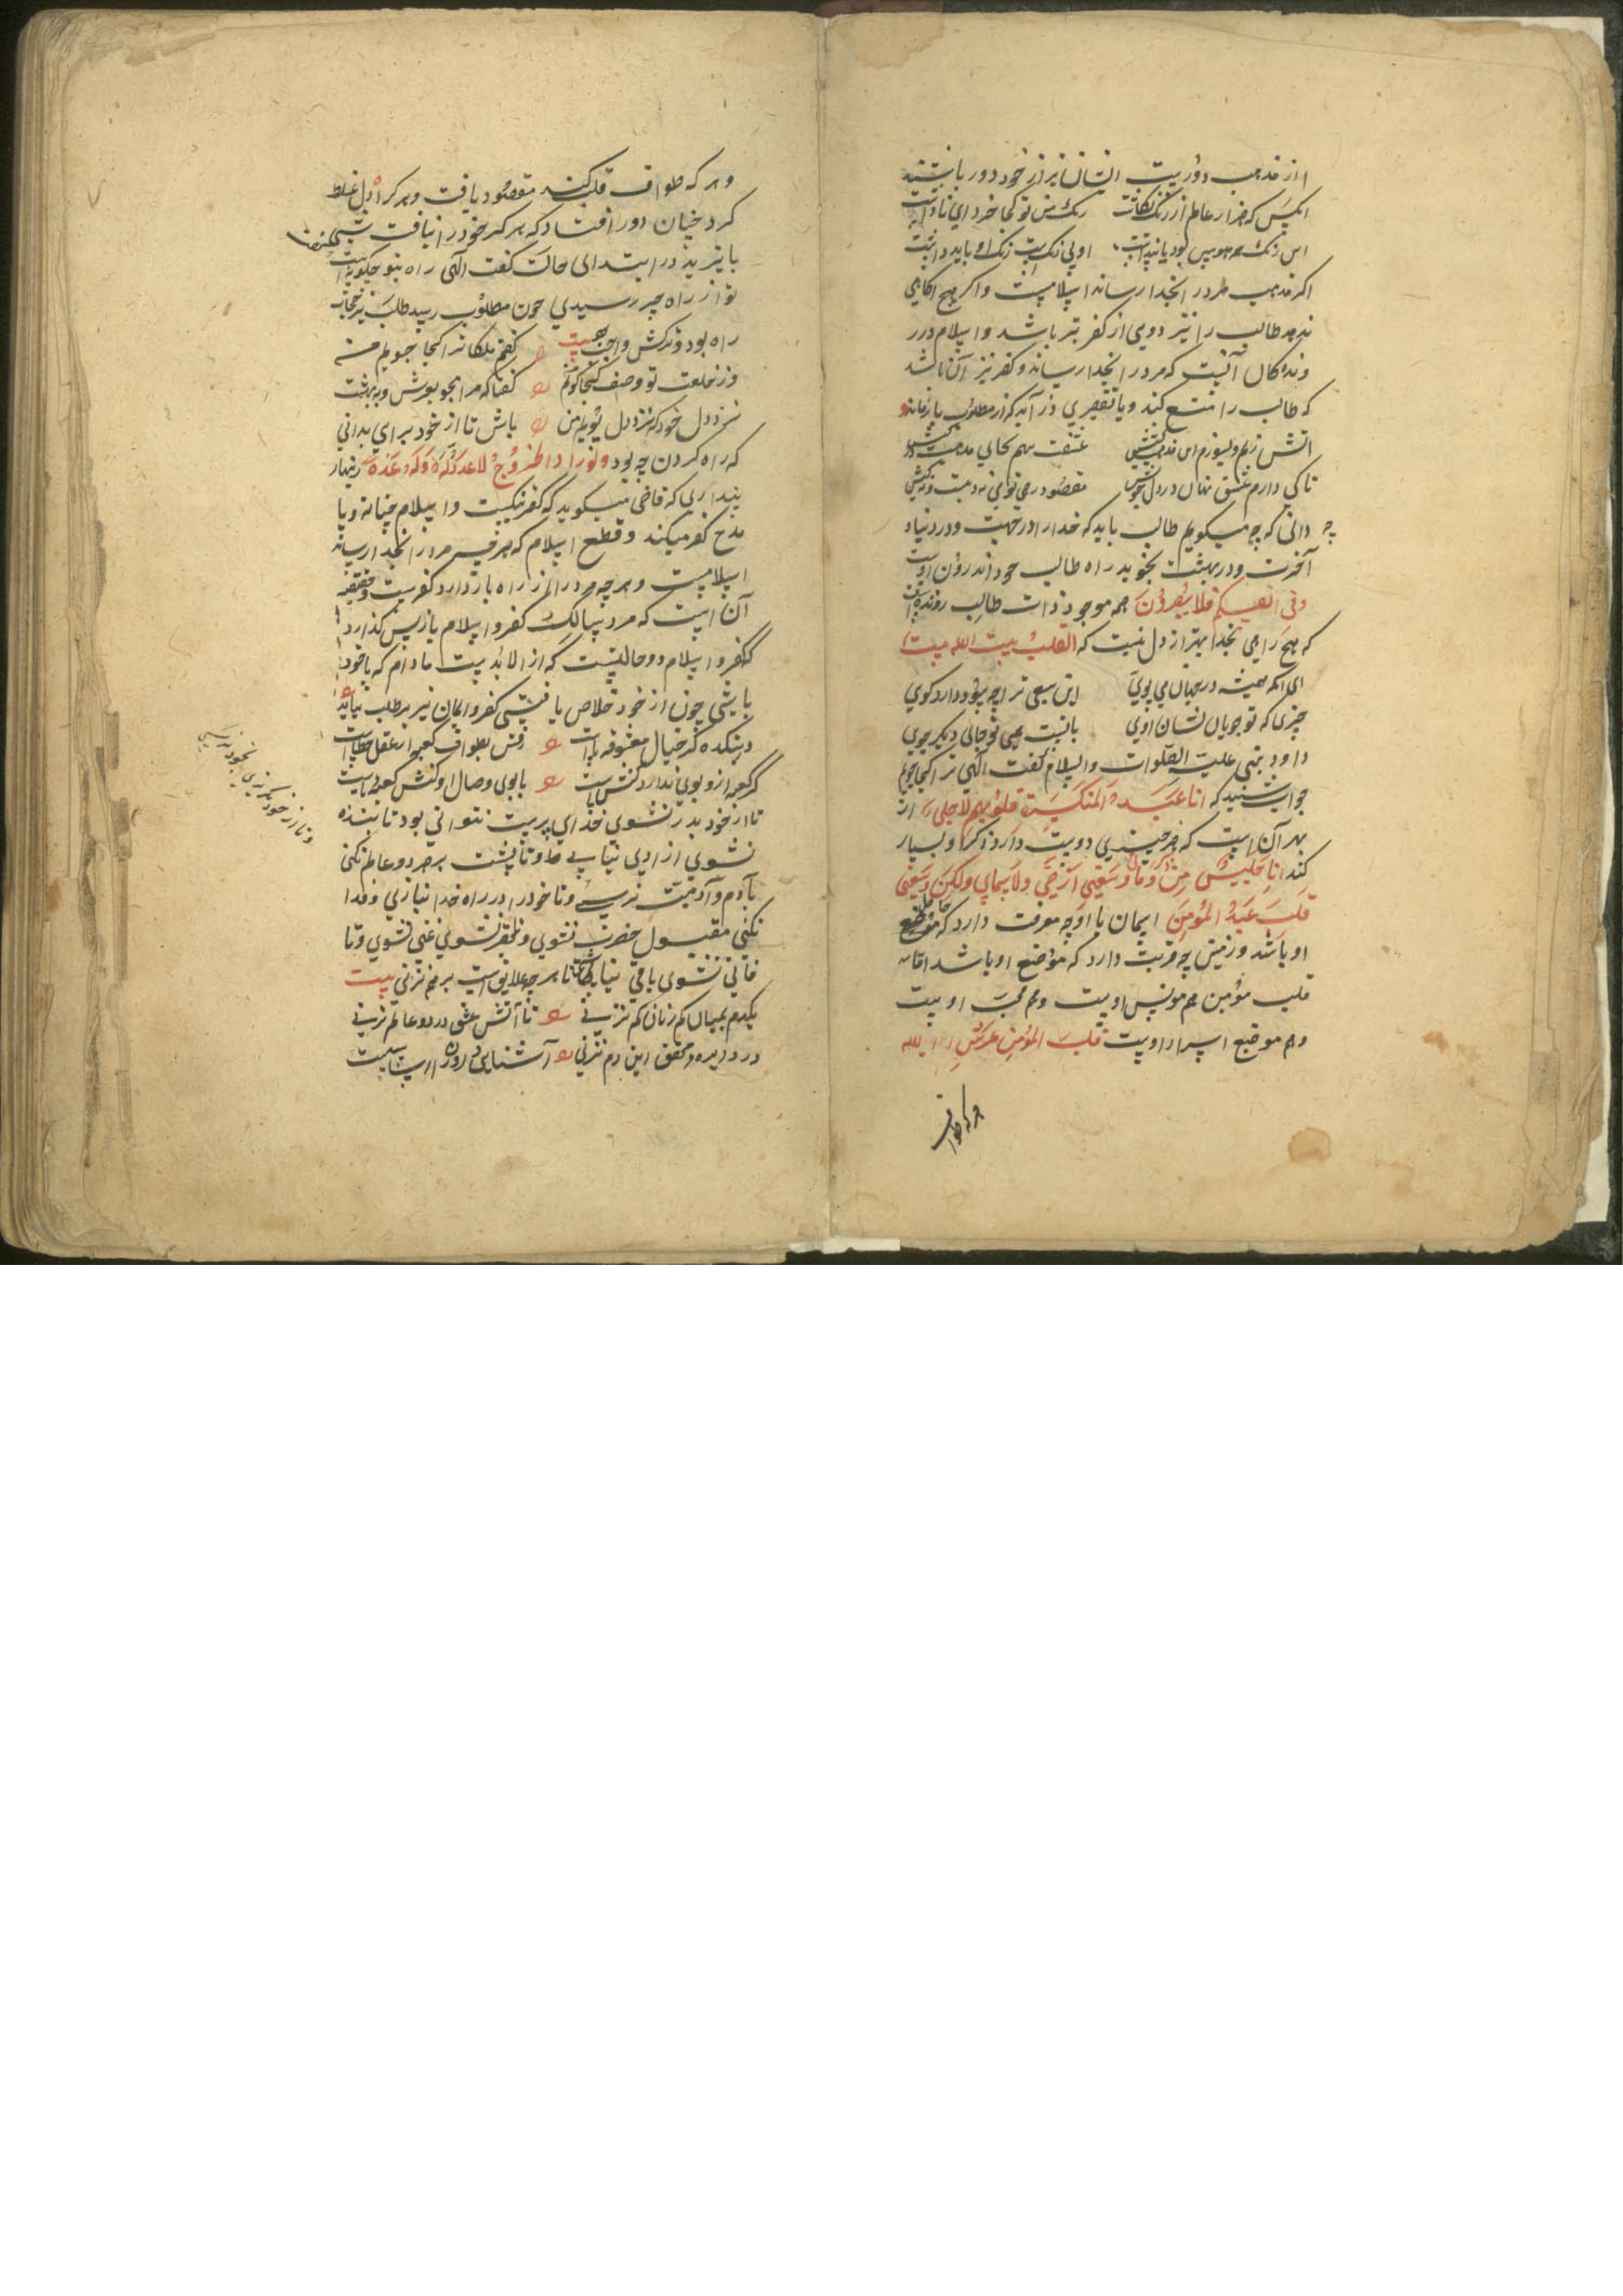 از مذهب دوریت انسان نیز از خود دور باشند
انکس که هزار عالم از رنگ نگاشت رنگ من تو کجا خرد ای ناداشت
این رنگ همه هوس بود یا پنداشت او بی رنگست رنگ او باید داشت
اگر مذهب مرد را بخدا رساند اسلامست و اگر هیچ اکاهی
ندهد طالب را بتر دویی از کفر بتر باشد و اسلام درر
وندکان آنست که مرد را بخدا رساند و کفر نیز آن باشد
که طالب را منع کند و یا تقصیری در آید که از مطلوب باز ماند
اتش بزنم و بسوزم این مذهب و کیش عشقت بنهم بجای مذهب در پیش
تا کی دارم عشق نهان در دل خویش مقصود رهی تویی نه دینست و نه کیش
دانی که چه میگویم طالب باید که خدا را در جهت و در دنیا و
آخرت و در بهشت نجوید راه طالب خود اندرون اوست
وفی انفسکم افلا تبصرون همه موجود ذات طالب رونده است
که هیچ راهی بخدا بهتر از دل نیست که القلب بیت الله بیت
ای انکه همیشه در جهان می پویی این سعی ترا چه سود دارد کوی
چیزی که تو جویان نشان اویی با تست همی تو جای دیگر جویی
داود نبی علیه الصلوات والسلام گفت الهی ترا کجا جویم
جواب شنید که انا عند المنکسرة قلوبهم لاجلی از
بهر آن است که هر چیزی دوست دارد ذکر او بسیار
کند انا جلیس من ذکرنی و ما وسعنی ارضی ولا سمایی ولکن وسعنی
قلب عبد المؤمن ایمان با او چه معرفت دارد که موضع
او باشد و زمین چه قربت دارد که موضع او باشد اما
قلب مؤمن هم مونس اوست و هم محب اوست
و هم موضع اسرار اوست قلب المؤمن عرش الله
هر که طواف
و هر که طواف قلب کند مقصود یافت و هر که راه دل غلط
کرد چنان دور افتاد که هرگز خود را نیافت
بایزید در ابتدای حالت گفت الهی راه بتو چگونه است
تو از راه چو رسیدی چون مطلوب رسید طلب نیز حجاب
راه بود و ترکش واجب بیت گفتم ملکا ترا کجا جویم من
وز خلعت تو وصف کجا گویم من گفتا که مرا مجو بعرش و به بهشت
نزد دل خود که نزد دل پویم من باش تا از خود برای بدانی
که راه کردن چه بود ولو ارادوا الخروج لاعدوا له عدة زنهار
پنداری که قاضی میگوید که کفر نیکست و اسلام چنانه و یا
مدح کفر میکند و قطع اسلام که هر چیز مرد را بخدا رساند
اسلامست و هر چه مرد را از راه باز دارد کفرست و حقیقه
آن است که مرد سالک کفر و اسلام باز پس گذارد
کفر و اسلام دو حالتیست که از لابدیست مادام که با خود
باشی چون از خود خلاص یافتی کفر و ایمان نیز بر طلب نیاید
در بتکده گر خیال معشوقه ماست رفتن بطواف کعبه از عقل خطاست
گر کعبه ازو بویی ندارد کنش است با بوی وصال او کنش کعبه ماست
تا از خود بدر نشوی خدای پرست نتوانی بود تا بنده
نشوی ازادی نیابی و تا پشت بر هر دو عالم نکنی
بآدم و آدمیت نرسی و تا خود را در راه خدا نبازی و فدا
نکنی مقبول حضرت نشوی و تا فقیر نشوی غنی نشوی و تا
فانی نشوی باقی نیابی تا بر چه علایق است بر هم نزنی بیت
تا آتش عشق در دو عالم نزنی
در دایره محقق این دم نزنی آشنایی درون
و تا از خود نگریزی بخود نرسی